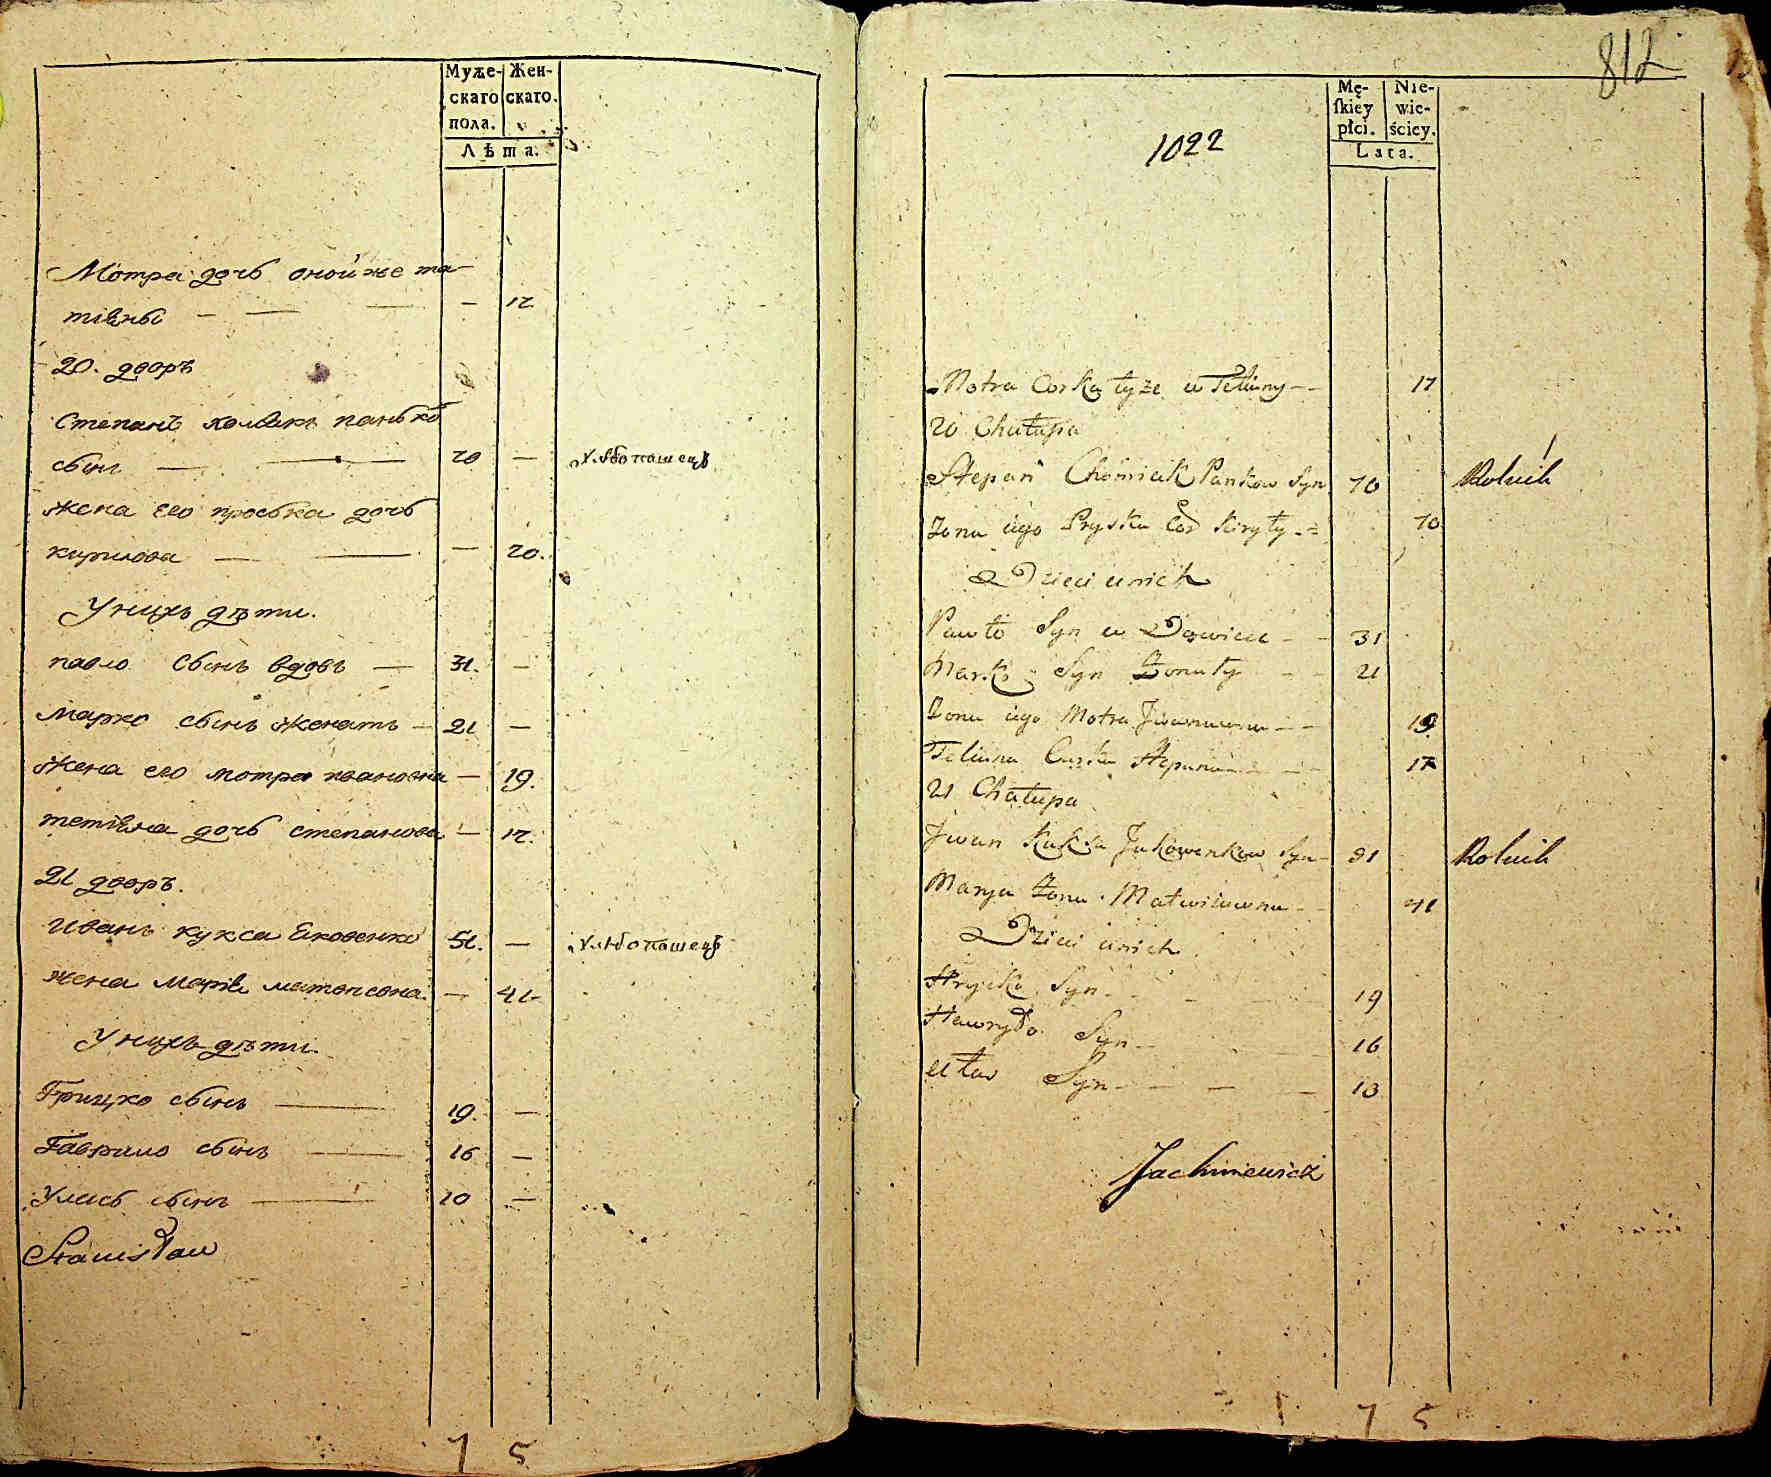 Муже-
скаго
пола.
Жен-
скаго.
Лѣта.
Мотра дочь онойже та
тіяны — — — — 17
20. дворъ
Степанъ хомякъ панько
сынъ — — 70 — хлѣбопашецъ
жена его проська дочь
кирилова — — — 70.
Унихъ дѣти.
павло сынъ вдовъ — 31. —
марко сынъ женатъ — 21 —
жена его мотра ивановна — 19.
тетіяна дочь степанова — 17.
21 дворъ.
иванъ кукса Яковенко 51. — хлѣбопашецъ
жена марія матвѣевна — 41
Унихъ дѣти
Грицко сынъ — 19. —
Гаврило сынъ — 16 —
Уласъ сынъ — 10 —
Stanisław
7 5
812
Mę-
skiey
płci.
Nie-
wie-
ściey.
Lata.
1022
Motra Corka tyże Tetianny — 17
20 Chałupa
Stepan Chomiak Pankow Syn 70 Rolnik
Zona iego Pryska Cor Kiryły 70
Dzieci u nich
Pawło Syn Wdowiec — 31
Marko Syn Zonaty — 21
Zona iego Motra Jwanowna — 19
Tetiana Curka Stepana — 17
21 Chałupa
Jwan Kuksa Jakowenkow Syn 51 Rolnik
Marya Zona Matwieiowna — 41
Dzieci u nich
Hryćko Syn — 19
Hawryło Syn — 16
Ułas Syn — 10
Jachimowicz
7 5